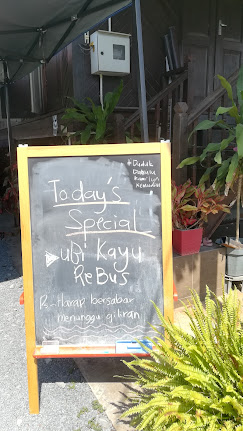 * Duduk
Dahulu
Kemudian
Today's
Special
ubi Kayu
ReBus
harap bersabar
menunggu giliran